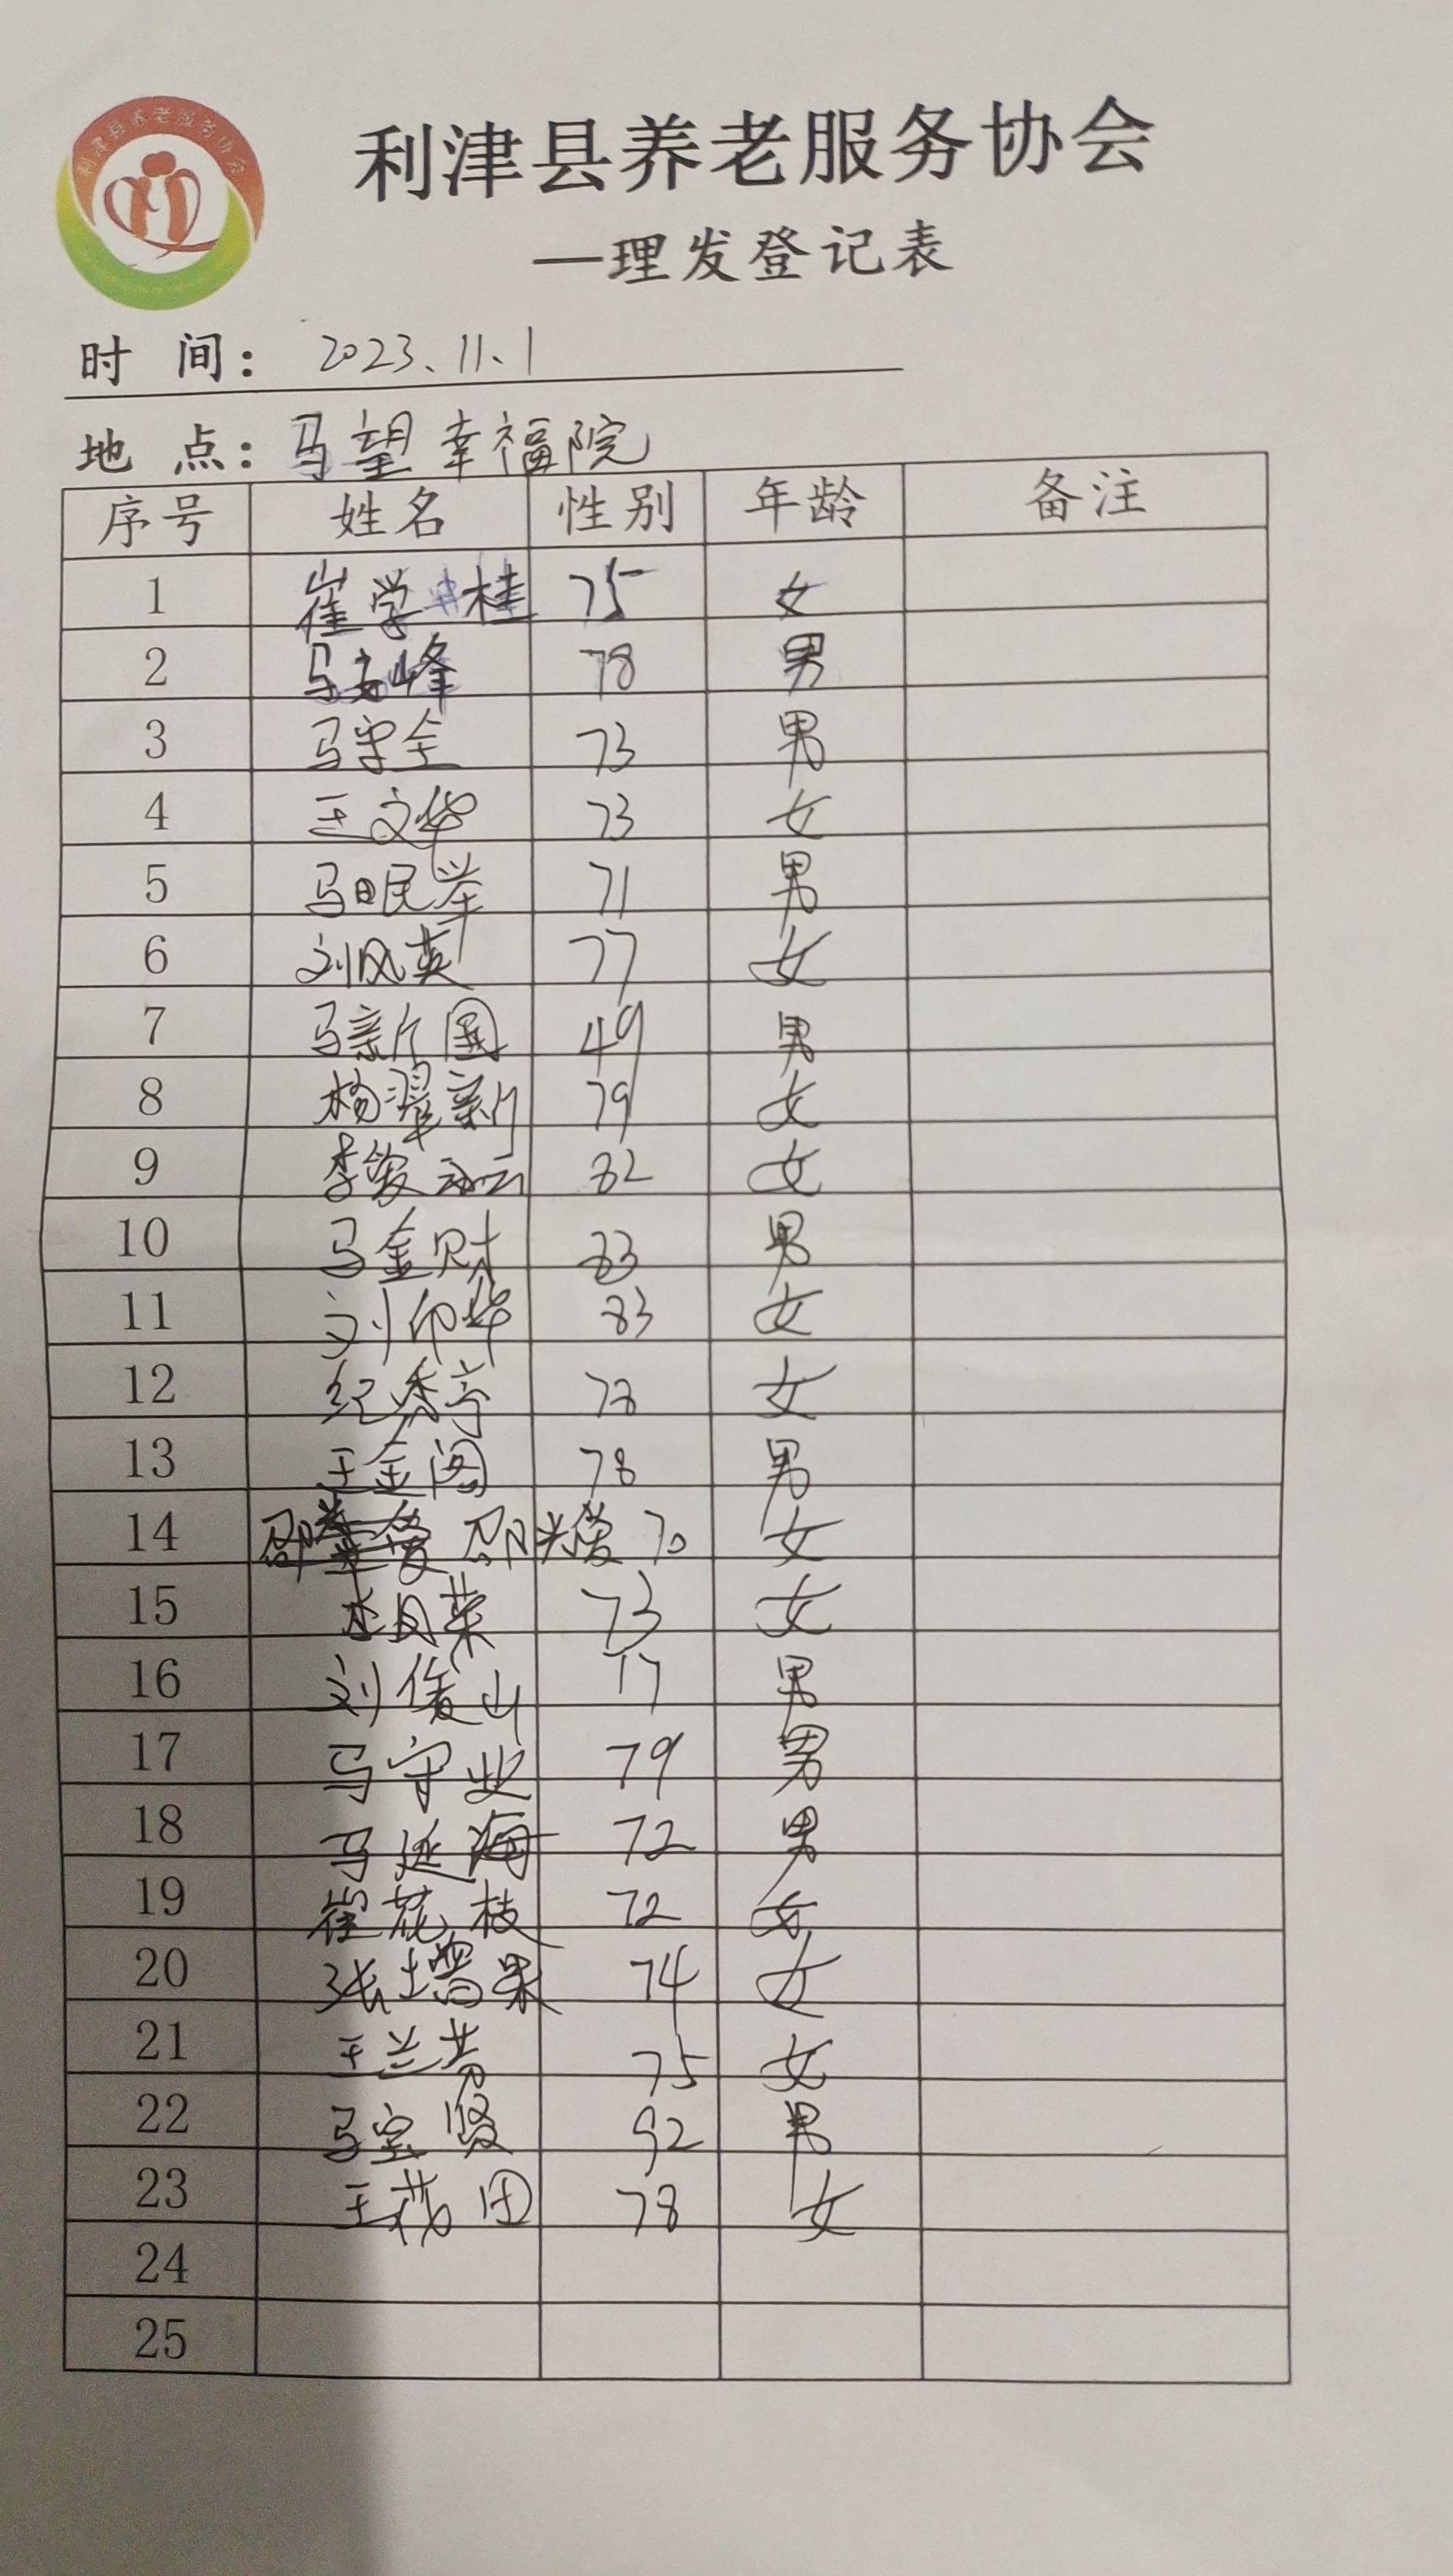 利津县养老服务协会
利津县养老服务协会
—理发登记表
时 间： 2023.11.1
地 点：马望幸福院
序号 姓名 性别 年龄 备注
1 崔学桂 75 女
2 马峰 78 男
3 马守全 73 男
4 王文华 73 女
5 马民举 71 男
6 刘风英 77 女
7 马新国 49 男
8 杨翠新 79 女
9 李 82 女
10 马金财 83 男
11 刘印华 83 女
12 纪秀亭 78 女
13 王金阁 78 男
14 邵兰爱 70 女
15 风荣 73 女
16 刘俊山 77 男
17 马守业 79 男
18 马延海 72 男
19 崔花枝 72 女
20 张增果 74 女
21 王兰芳 75 女
22 马宝贤 92 男
23 王田 78 女
24
25